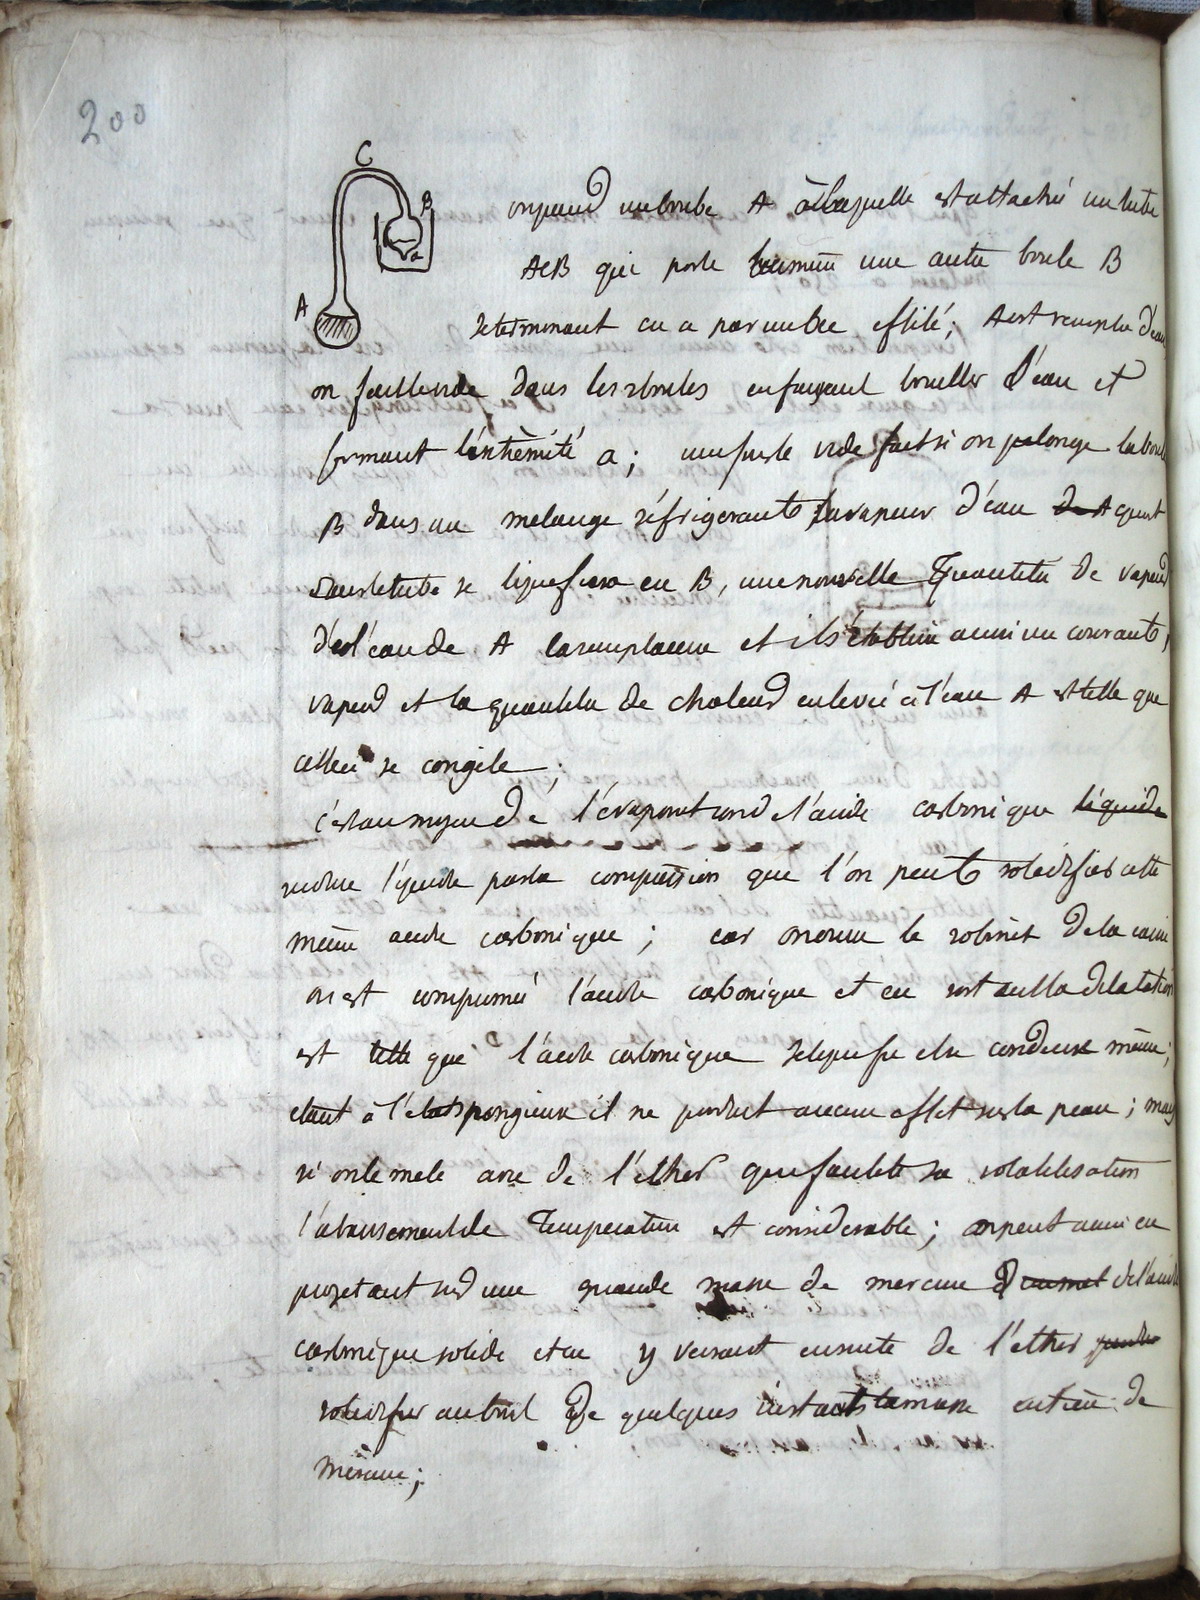 200
C
B
a
A
on prend une boule A à laquelle est attaché un tube
ACB qui porte une autre boule B
se terminant en a par un bec effilé; A est remplie d'eau
on fait le vide dans les 2 boules en faisant bouillir l'eau et
fermant l'extrémité a; une fois le vide fait si on plonge la boule
B dans un mélange réfrigérant la vapeur d'eau de A qui est
dans le tube se liquefiera en B, une nouvelle quantité de vapeur
de l'eau de A la remplacera et il s'établira ainsi un courant
vapeur et la quantité de chaleur enlevée à l'eau A est telle que
celle ci se congèle;
c'est au moyen de l'évaporation de l'acide carbonique liquide
rendu liquide par la compression que l'on peut solidifier cette
même acide carbonique; car on ouvre le robinet de la caisse
où est comprimé l'acide carbonique et en sortant la dilatation
est telle que l'acide carbonique se liquefie et se condense même;
étant à l'état spongieux il ne produit aucun effet sur la peau; mais
si on le mele avec de l'éther qui facilite sa volatilisation
l'abaissement de température est considérable; on peut aussi en
projetant sur une grande masse de mercure de l'acide
carbonique solide et en y versant ensuite de l'éther
solidifier au bout de quelques instants la masse entière de
mercure;